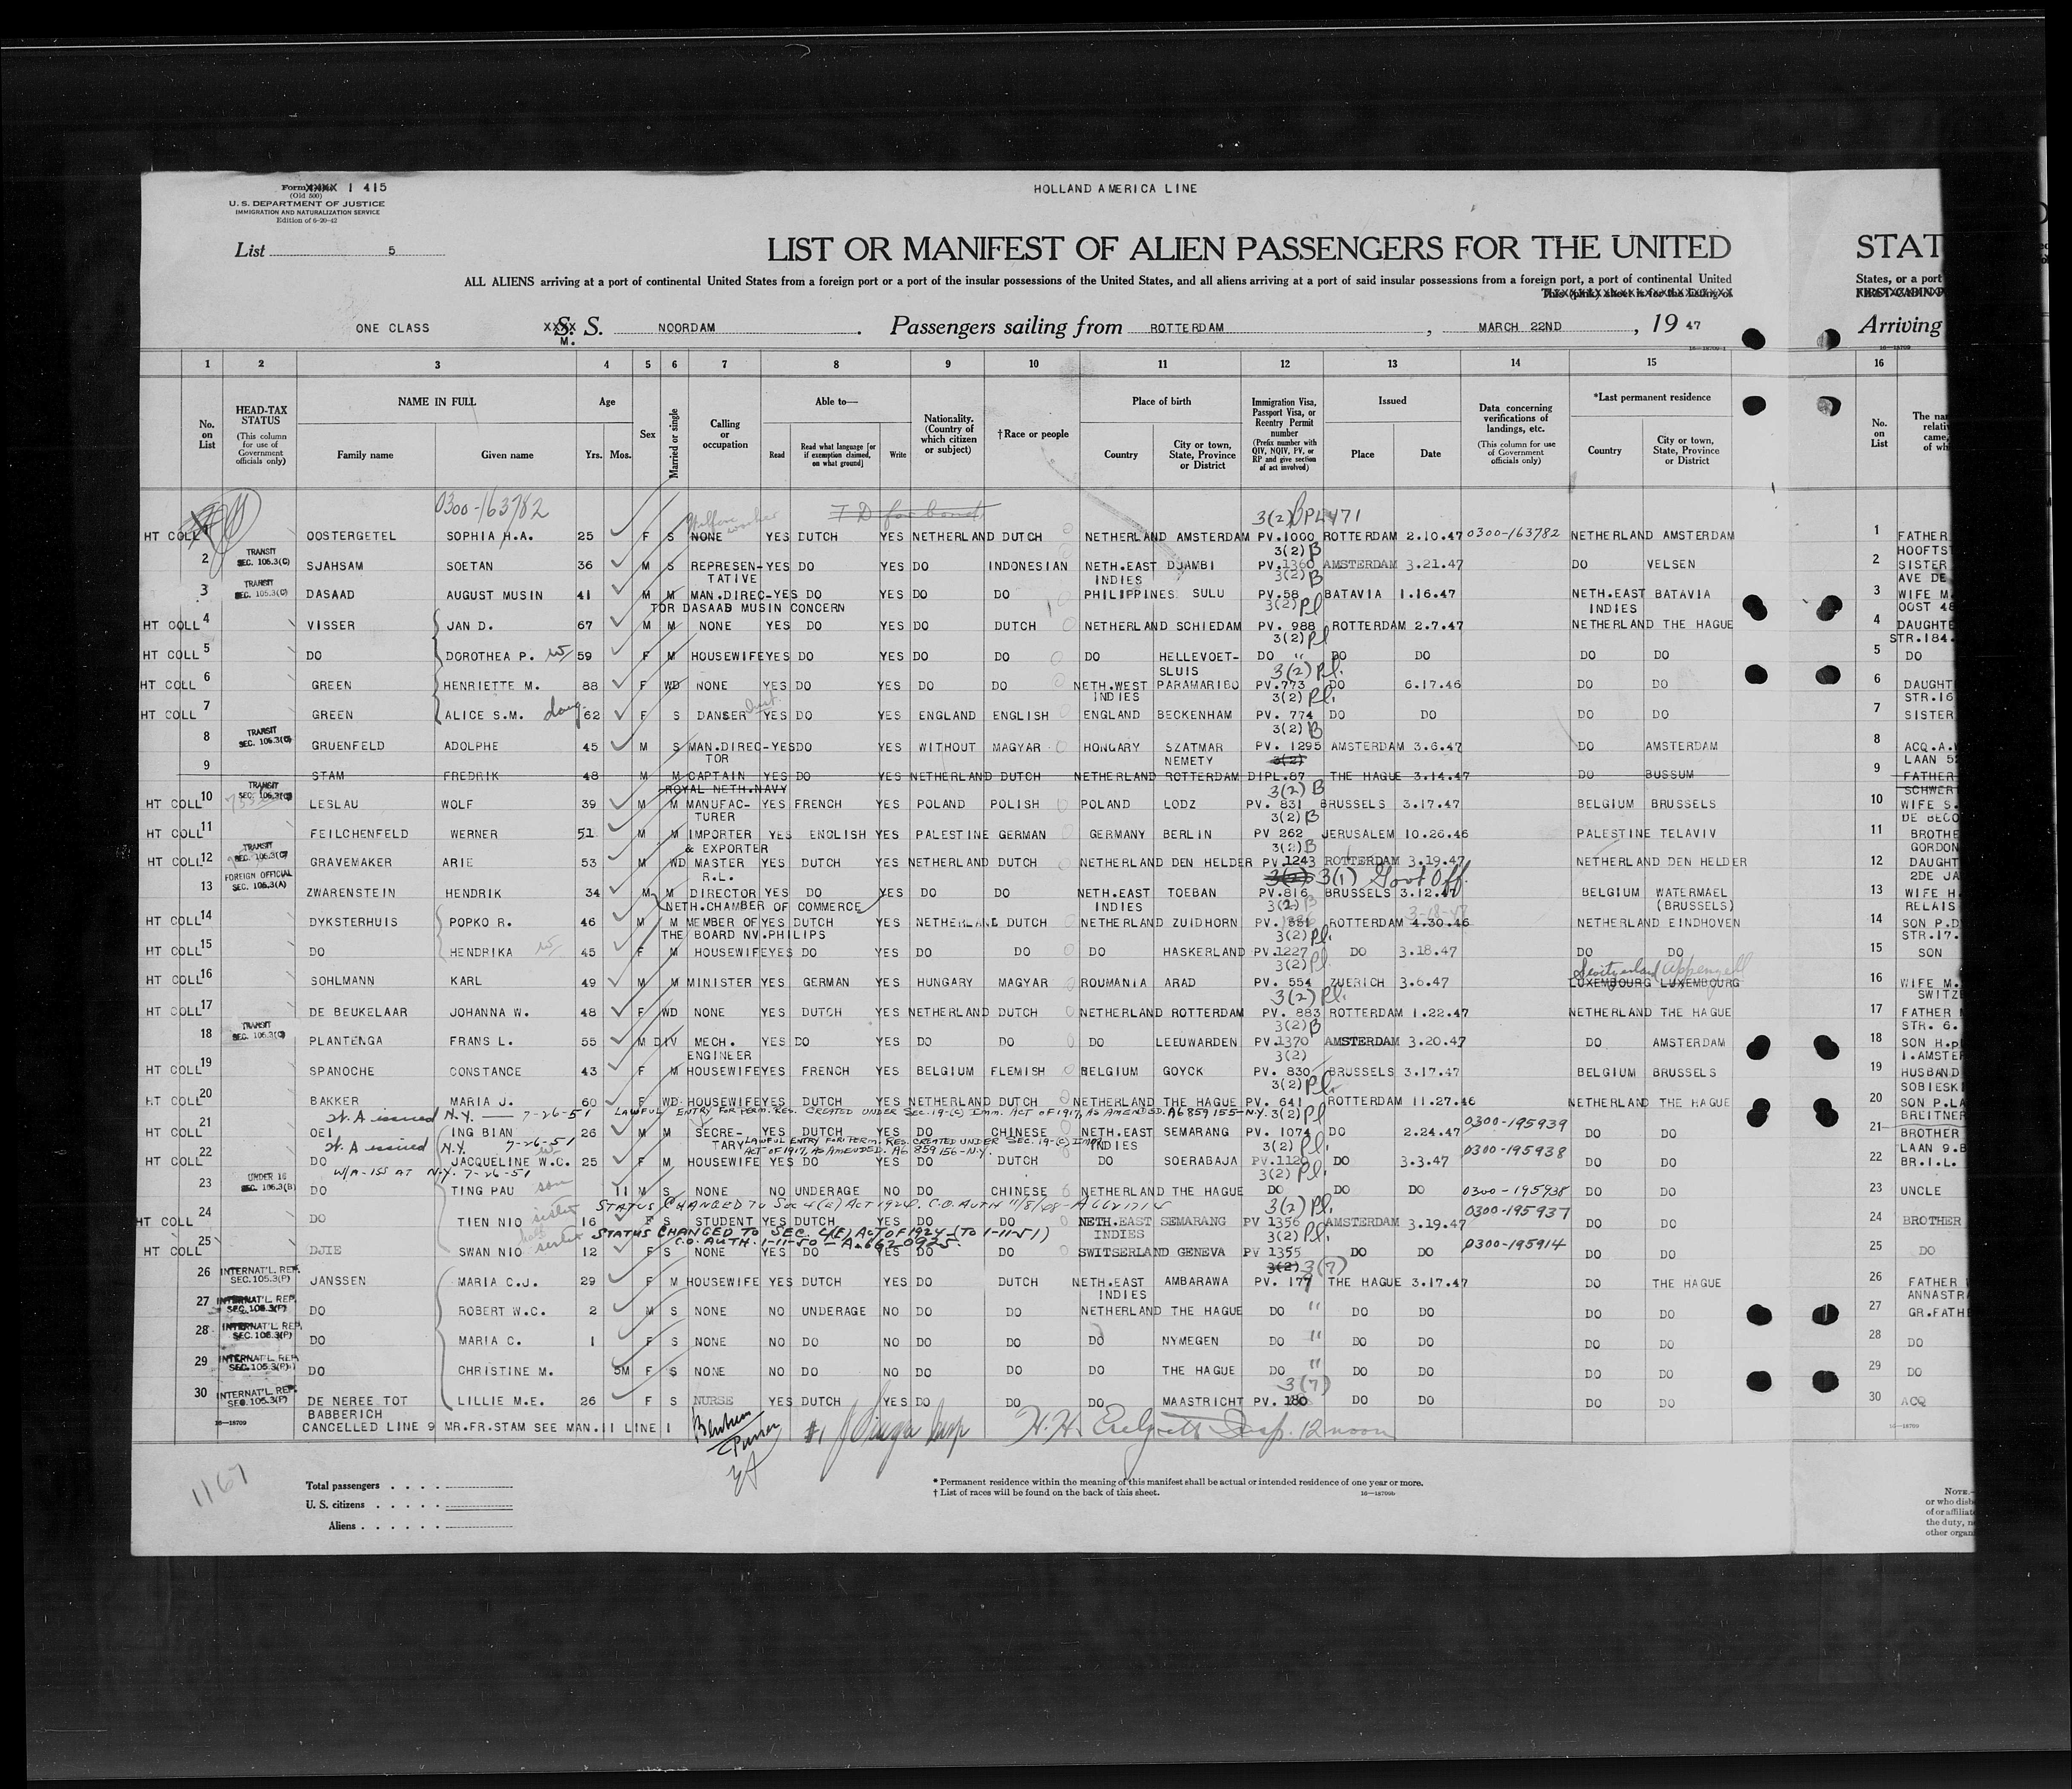 Form XXXX I 415
(Old 500)
U. S. DEPARTMENT OF JUSTICE
IMMIGRATION AND NATURALIZATION SERVICE
Edition of 6-20-42
HOLLAND AMERICA LINE
List 5
LIST OR MANIFEST OF ALIEN PASSENGERS FOR THE UNITED STAT
ALL ALIENS arriving at a port of continental United States from a foreign port or a port of the insular possessions of the United States, and all aliens arriving at a port of said insular possessions from a foreign port, a port of continental United States, or a port
ONE CLASS XXXX S. S. M. NOORDAM. Passengers sailing from ROTTERDAM, MARCH 22ND, 19 47 Arriving
1 2 3 4 5 6 7 8 9 10 11 12 13 14 15 16
No. on List
HEAD-TAX STATUS (This column for use of Government officials only)
NAME IN FULL Family name Given name
Age Yrs. Mos.
Sex
Married or single
Calling or occupation
Able to— Read Read what language [or if exemption claimed, on what ground] Write
Nationality. (Country of which citizen or subject)
†Race or people
Place of birth Country City or town, State, Province or District
Immigration Visa, Passport Visa, or Reentry Permit number (Prefix number with QIV, NQIV, PV, or RP and give section of act involved)
Issued Place Date
Data concerning verifications of landings, etc. (This column for use of Government officials only)
*Last permanent residence Country City or town, State, Province or District
No. on List
0300-163782 3(2)
HT COLL 1 OOSTERGETEL SOPHIA H.A. 25 F S NONE YES DUTCH YES NETHERLAND DUTCH NETHERLAND AMSTERDAM PV.1000 ROTTERDAM 2.10.47 0300-163782 NETHERLAND AMSTERDAM 1 FATHER
3(2) B HOOFTST
2 TRANSIT SEC. 105.3(C) SJAHSAM SOETAN 36 M S REPRESEN-TATIVE YES DO YES DO INDONESIAN NETH.EAST INDIES DJAMBI PV.1360 AMSTERDAM 3.21.47 DO VELSEN 2 SISTER
3(2) B AVE DE
3 TRANSIT SEC. 105.3(C) DASAAD AUGUST MUSIN 41 M M MAN.DIREC-TOR DASAAD MUSIN CONCERN YES DO YES DO DO PHILIPPINES SULU PV.58 BATAVIA 1.16.47 NETH.EAST INDIES BATAVIA 3 WIFE M.
3(2) Pl OOST 48
HT COLL 4 VISSER JAN D. 67 M M NONE YES DO YES DO DUTCH NETHERLAND SCHIEDAM PV. 988 ROTTERDAM 2.7.47 NETHERLAND THE HAGUE 4 DAUGHTE
3(2) Pl STR.184.
HT COLL 5 DO DOROTHEA P. w 59 F M HOUSEWIFE YES DO YES DO DO DO HELLEVOET-SLUIS DO " DO DO DO DO 5 DO
3(2) Pl.
HT COLL 6 GREEN HENRIETTE M. 88 F WD NONE YES DO YES DO DO NETH.WEST INDIES PARAMARIBO PV.773 DO 6.17.46 DO DO 6 DAUGHT
3(2) Pl. STR.16
HT COLL 7 GREEN ALICE S.M. daug 62 F S DANSER YES DO YES ENGLAND ENGLISH ENGLAND BECKENHAM PV. 774 DO DO DO DO 7 SISTER
3(2) B
8 TRANSIT SEC. 105.3(C) GRUENFELD ADOLPHE 45 M S MAN.DIREC-TOR YES DO YES WITHOUT MAGYAR HONGARY SZATMAR NEMETY PV. 1295 AMSTERDAM 3.6.47 DO AMSTERDAM 8 ACQ.A.
3(2) LAAN 5
9 STAM FREDRIK 48 M M CAPTAIN ROYAL NETH.NAVY YES DO YES NETHERLAND DUTCH NETHERLAND ROTTERDAM DIPL.67 THE HAGUE 3.14.47 DO BUSSUM 9 FATHER
3(2) B SCHWER
HT COLL 10 TRANSIT SEC. 105.3(C) LESLAU WOLF 39 M M MANUFAC-TURER YES FRENCH YES POLAND POLISH POLAND LODZ PV. 831 BRUSSELS 3.17.47 BELGIUM BRUSSELS 10 WIFE S.
3(2) B DE BECO
HT COLL 11 FEILCHENFELD WERNER 51 M M IMPORTER & EXPORTER YES ENGLISH YES PALESTINE GERMAN GERMANY BERLIN PV 262 JERUSALEM 10.26.46 PALESTINE TELAVIV 11 BROTHE
3(2) B GORDON
HT COLL 12 TRANSIT SEC. 105.3(C) GRAVEMAKER ARIE 53 M WD MASTER R.L. YES DUTCH YES NETHERLAND DUTCH NETHERLAND DEN HELDER PV.1243 ROTTERDAM 3.19.47 NETHERLAND DEN HELDER 12 DAUGHT
3(2) 3(1) Govt Off. 2DE JA
13 FOREIGN OFFICIAL SEC. 105.3(A) ZWARENSTEIN HENDRIK 34 M M DIRECTOR NETH.CHAMBER OF COMMERCE YES DO YES DO DO NETH.EAST INDIES TOEBAN PV.816 BRUSSELS 3.12.47 BELGIUM WATERMAEL (BRUSSELS) 13 WIFE H.
3(2) B 3-18-47 RELAIS
HT COLL 14 DYKSTERHUIS POPKO R. 46 M M MEMBER OF THE BOARD NV.PHILIPS YES DUTCH YES NETHERLAND DUTCH NETHERLAND ZUIDHORN PV. ROTTERDAM 4.30.46 NETHERLAND EINDHOVEN 14 SON P.D
3(2) Pl. STR.17.
HT COLL 15 DO HENDRIKA w 45 F M HOUSEWIFE YES DO YES DO DO DO HASKERLAND PV.1227 DO 3.18.47 DO DO 15 SON
3(2) Pl. Switzerland Appenzell
HT COLL 16 SOHLMANN KARL 49 M M MINISTER YES GERMAN YES HUNGARY MAGYAR ROUMANIA ARAD PV. 554 ZUERICH 3.6.47 LUXEMBOURG LUXEMBOURG 16 WIFE M.
3(2) Pl. SWITZE
HT COLL 17 DE BEUKELAAR JOHANNA W. 48 F WD NONE YES DUTCH YES NETHERLAND DUTCH NETHERLAND ROTTERDAM PV. 883 ROTTERDAM 1.22.47 NETHERLAND THE HAGUE 17 FATHER
3(2) B STR. 6.
18 TRANSIT SEC. 105.3(C) PLANTENGA FRANS L. 55 M DIV MECH. ENGINEER YES DO YES DO DO DO LEEUWARDEN PV.1370 AMSTERDAM 3.20.47 DO AMSTERDAM 18 SON H.P
3(2) I.AMSTE
HT COLL 19 SPANOCHE CONSTANCE 43 F M HOUSEWIFE YES FRENCH YES BELGIUM FLEMISH BELGIUM GOYCK PV. 830 BRUSSELS 3.17.47 BELGIUM BRUSSELS 19 HUSBAND
3(2) Pl. SOBIESK
HT COLL 20 BAKKER MARIA J. 60 F WD HOUSEWIFE YES DUTCH YES NETHERLAND DUTCH NETHERLAND THE HAGUE PV. 641 ROTTERDAM 11.27.46 NETHERLAND THE HAGUE 20 SON P.LA
W.A issued N.Y. — 7-26-51 LAWFUL ENTRY FOR PERM. RES. CREATED UNDER SEC.19-(C) IMM. ACT OF 1917, AS AMENDED. A6 859 155-N.Y. 3(2) Pl BREITNER
HT COLL 21 OEI ING BIAN 26 M M SECRE-TARY YES DUTCH YES DO CHINESE NETH.EAST INDIES SEMARANG PV. 1074 DO 2.24.47 0300-195939 DO DO 21 BROTHER
W.A issued N.Y. 7-26-51 LAWFUL ENTRY FOR PERM. RES. CREATED UNDER SEC. 19-(C) IMM. ACT OF 1917, AS AMENDED. A6 859 156-N.Y. 3(2) Pl. LAAN 9.B
HT COLL 22 DO JACQUELINE W.C. w 25 F M HOUSEWIFE YES DO YES DO DUTCH DO SOERABAJA PV.1120 DO 3.3.47 0300-195938 DO DO 22 BR.I.L.
W/A-ISS AT N.Y. 7-26-51 3(2) Pl.
23 UNDER 16 SEC. 105.3(B) DO TING PAU son 11 M S NONE NO UNDERAGE NO DO CHINESE NETHERLAND THE HAGUE DO DO DO 0300-195938 DO DO 23 UNCLE
STATUS CHANGED TO Sec 4(E) ACT 1924. C.O. AUTH 11/8/48 3(2) Pl.
HT COLL 24 DO TIEN NIO sister 16 F S STUDENT YES DUTCH YES DO DO NETH.EAST INDIES SEMARANG PV 1356 AMSTERDAM 3.19.47 0300-195937 DO DO 24 BROTHER
STATUS CHANGED TO SEC. 4(E) ACT OF 1924 (TO 1-11-51) C.O. AUTH. 1-11-50 - A.6620925. 3(2) Pl.
HT COLL 25 DJIE SWAN NIO half sister 12 F S NONE YES DO YES DO DO SWITSERLAND GENEVA PV 1355 DO DO 0300-195914 DO DO 25 DO
3(2) 3(7)
26 INTERNAT'L. REP. SEC.105.3(P) JANSSEN MARIA C.J. 29 F M HOUSEWIFE YES DUTCH YES DO DUTCH NETH.EAST INDIES AMBARAWA PV. 177 THE HAGUE 3.17.47 DO THE HAGUE 26 FATHER
ANNASTRA
27 INTERNAT'L. REP. SEC.105.3(P) DO ROBERT W.C. 2 M S NONE NO UNDERAGE NO DO DO NETHERLAND THE HAGUE DO " DO DO DO DO 27 GR.FATHE
28 INTERNAT'L. REP. SEC.105.3(P) DO MARIA C. 1 F S NONE NO DO NO DO DO DO NYMEGEN DO " DO DO DO DO 28 DO
29 INTERNAT'L. REP. SEC.105.3(P) DO CHRISTINE M. 5M F S NONE NO DO NO DO DO DO THE HAGUE DO " DO DO DO DO 29 DO
3(7)
30 INTERNAT'L. REP. SEC.105.3(P) DE NEREE TOT BABBERICH LILLIE M.E. 26 F S NURSE YES DUTCH YES DO DO DO MAASTRICHT PV. 180 DO DO DO DO 30 ACQ
16—18709 CANCELLED LINE 9 MR.FR.STAM SEE MAN.11 LINE 1
12 noon
1167
Total passengers
U. S. citizens
Aliens
* Permanent residence within the meaning of this manifest shall be actual or intended residence of one year or more.
† List of races will be found on the back of this sheet. 16—18709b
NOTE.—
or who disb
of or affiliate
the duty, n
other organ